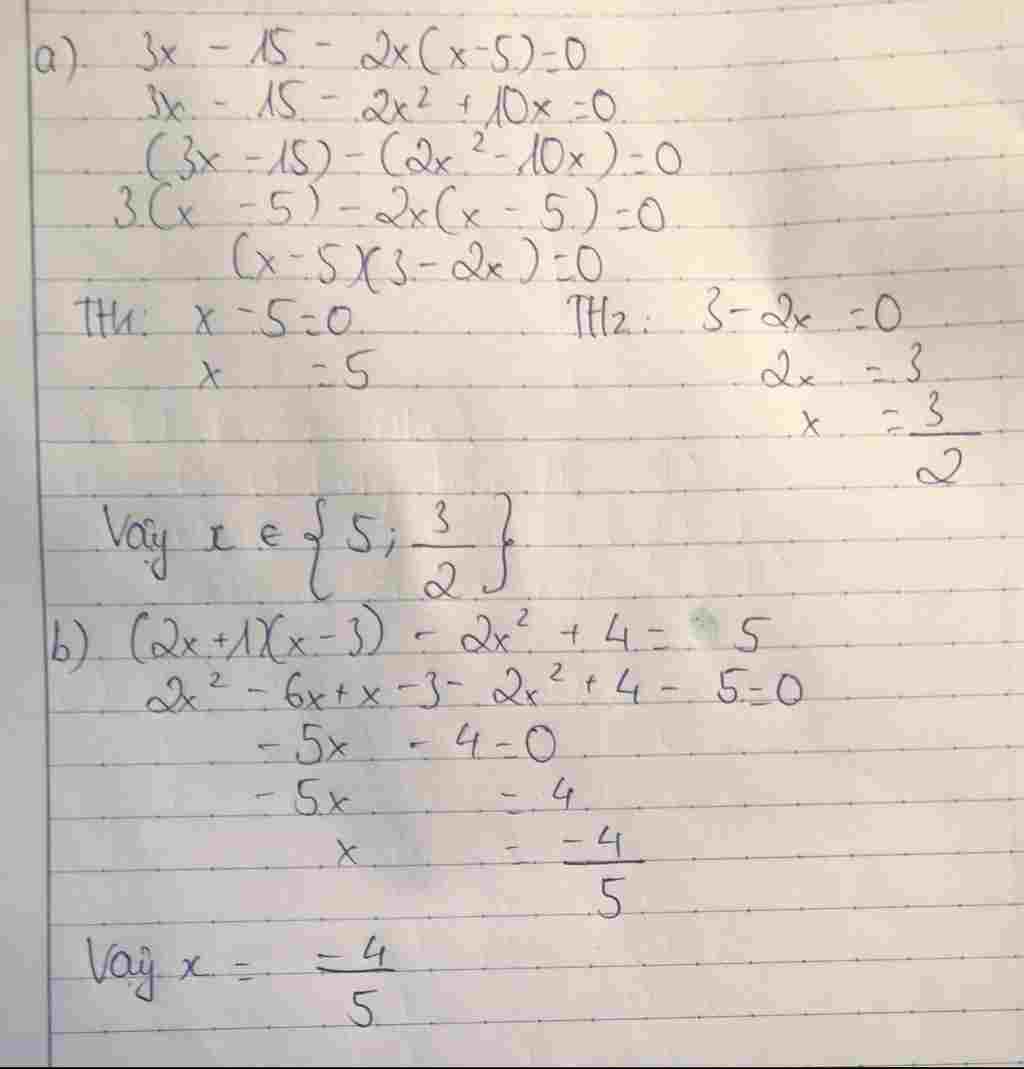 a). 3x - 15 - 2x(x-5)=0
3x - 15 - 2x² + 10x =0
(3x -15) - (2x² - 10x)=0
3.(x - 5) - 2x(x - 5.)=0
(x-5)(3-2x)=0
TH1: x -5=0 TH2: 3-2x =0
x =5 2x =3
x = 3/2
Vậy x ∈ {5; 3/2}
b). (2x+1)(x-3) - 2x² + 4 = 5
2x² - 6x + x - 3 - 2x² + 4 - 5=0
-5x - 4=0
-5x = 4
x = -4/5
Vậy x = -4/5